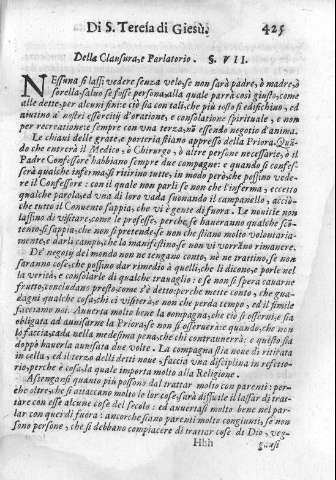 Di S. Teresa di Giesù. 425
Della Clausura, e Parlatorio. §. VII.
NEssuna si lassi vedere senza velo, se non sarà padre, ò madre, ò
sorella, saluo se fosse persona, alla quale parrà così giusto, come
alle dette, per alcuni fini: e ciò sia con tali, che più tosto si edifichino, ed
aiutino a' nostri essercitij d'oratione, e consolatione spirituale, e non
per recreatione: e sempre con vna terza, nõ essendo negotio d'anima.
Le chiaui delle grate, e porteria stiano appresso della Priora. Quã-
do che entrerà il Medico, ò Chirurgo, ò altre persone necessarie, ò il
Padre Confessore habbiano sempre due compagne: e quando si confes-
serà qualche inferma, si ritirino tutte, in modo però, che possino vede-
re il Confessore: con il quale non parli se non che l'inferma, eccetto
qualche parola, ed vna di loro vada suonando il campanello, acciò-
che tutto il Conuento sappia, che vi è gente di fuora. Le nouitie non
lassino di visitare, come le professe, perche, se haueranno qualche scõ-
tento, si sappia, che non si pretende, se non che stiano molto volontaria-
mente, e darli campo, che lo manifestino, se non vi vorrãno rimanere.
De' negotij del mondo non ne tengano conto, nè ne trattino, se non
saranno cose, che possino dar rimedio à quelli, che li dicono, e porle nel
la verità, e consolarle di qualche trauaglio: e se non si spera cauarne
frutto, concludano presto, come s'è detto, perche mette conto, che gua-
dagni qualche cosa, chi ci visiterà, e non che perda tempo, ed il simile
facciamo noi. Auuerta molto bene la compagna, che ciò si osserui, e sia
obligata ad auuisarne la Priora, se non si osseruerà: e quando che non
lo faccia, cada nella medesima pena, che chi contrauuerrà: e questo sia
doppò hauerla auuisata due volte. La compagna stia noue dì ritirata
in cella, ed il terzo delli detti noue, faccia vna disciplina in refetto-
rio, perche è cosa, la quale importa molto alla Religione.
Astengansi quanto più possono dal trattar molto con parenti: per-
che oltre, che si attaccano molto le lor cose, sarà difficile il lassar di trat-
tare con esse alcune cose del secolo: ed auuertasi molto bene nel par-
lar con quei di fuora: ancorche siano parenti molto congiunti, se non
sono persone, che si debbano compiacere di trattar cose di Dio, veg-
Hhh gansi